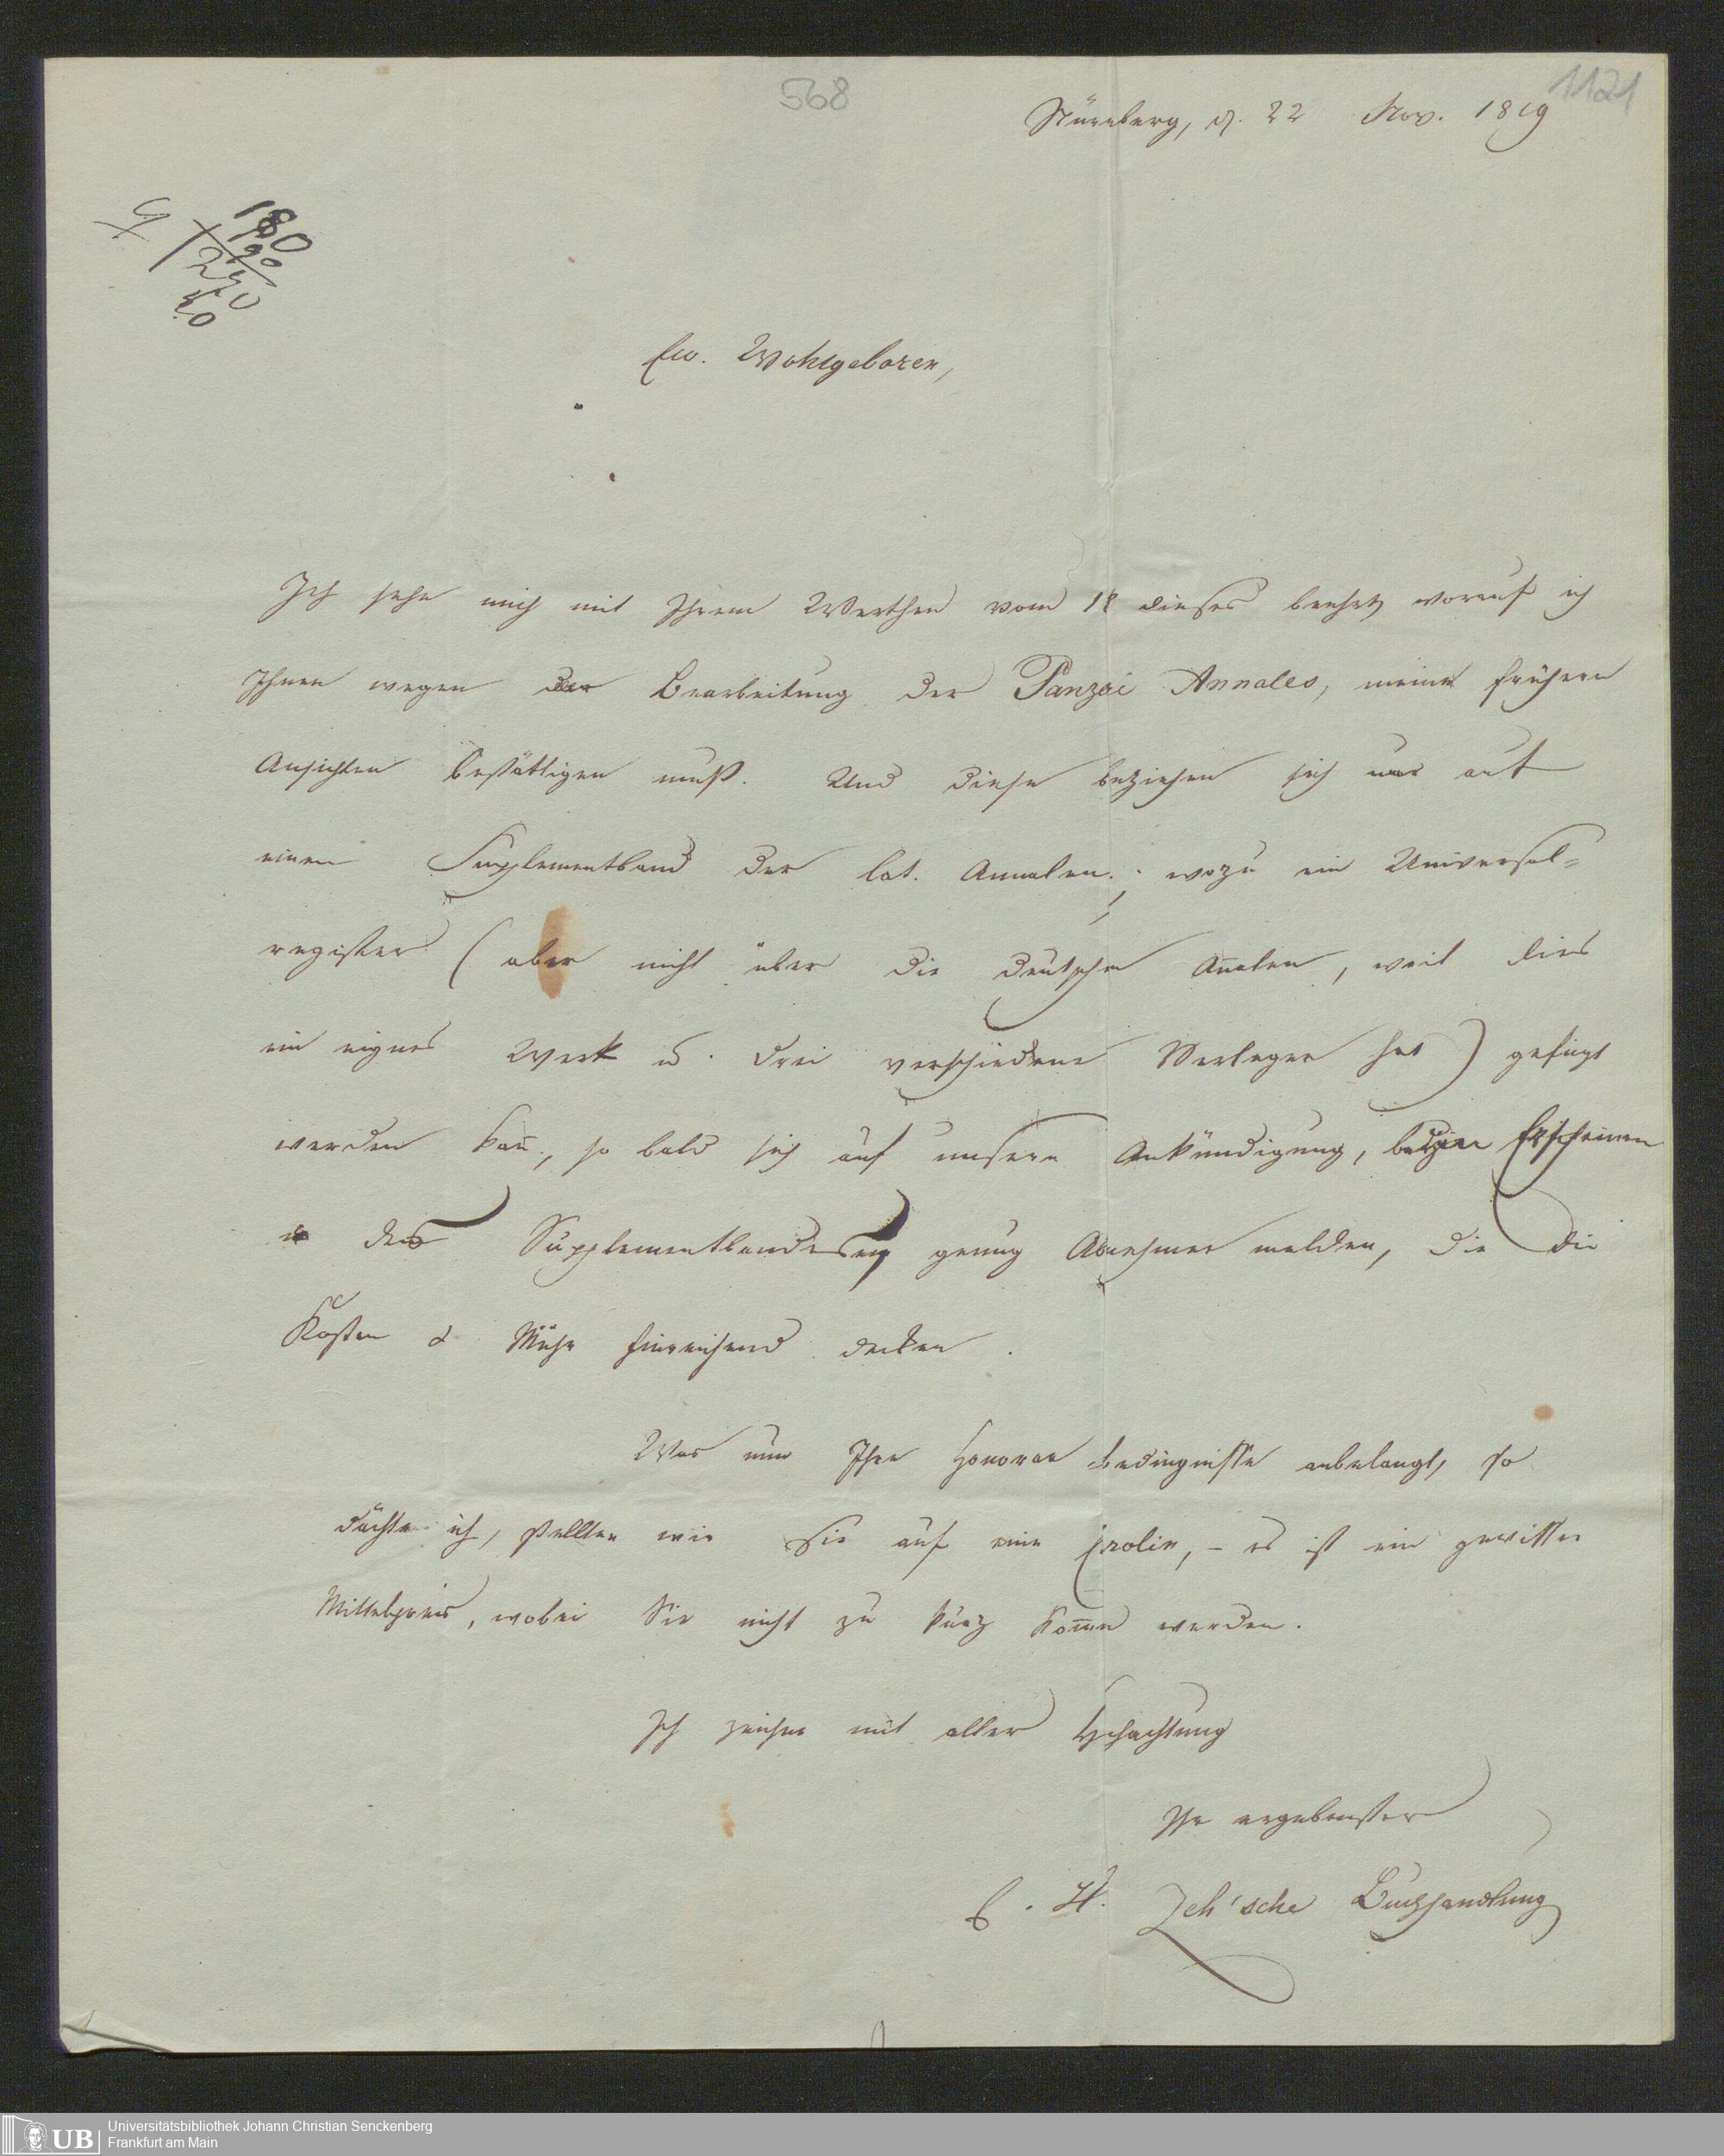 568
1121
Nürnberg, d. 22 Nov. 1819
180
90
270
Ew. Wohlgeboren,
Ich sehe mich mit Ihrem Werthen vom 18 dieses beehrt, worauf ich
Ihnen wegen der Bearbeitung der Panzeri Annales, meine frühern
Ansichten bestättigen muß. Und diese beziehen sich nur auf
einen Supplementband der lat. Annalen; wozu ein Universal-
register (aber nicht über die deutschen Analen, weil dies
ein eignes Werk u. drei verschiedene Verleger hat) gefügt
werden kan, so bald sich auf unsere Ankündigung, Erscheinen
des Supplementbandes genug Abnehmer melden, die die
Kosten & Mühe hinreichend decken.
Was nun Ihre Honorar bedingnisse anbelangt, so
dächte ich, stellten wir Sie auf eine Carolin, – es ist ein gewisser
Mittelpreis, wobei Sie nicht zu kurz komen werden.
Ich zeichne mit aller Hochachtung
Ihr ergebenster
C. H. Zeh'sche Buchhandlung
UB
Universitätsbibliothek Johann Christian Senckenberg
Frankfurt am Main